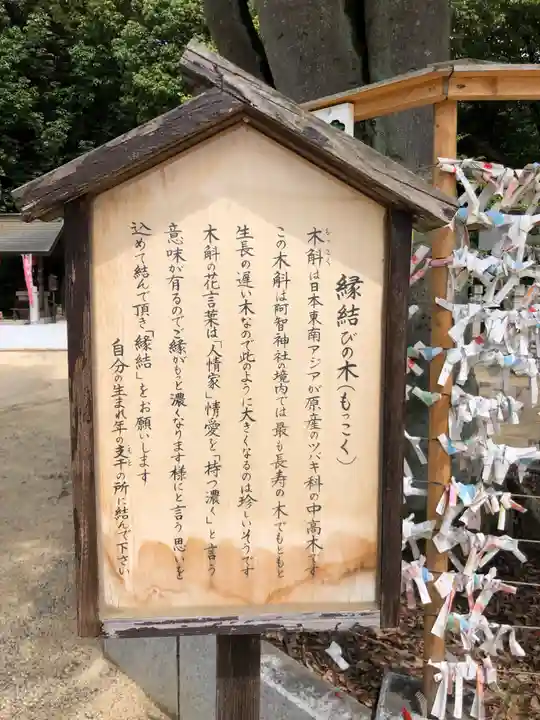 縁結びの木(もっこく)
木斛は日本東南アジアが原産のツバキ科の中高木です
この木斛は阿智神社の境内では最も長寿の木でもともと
生長の遅い木なので此のように大きくなるのは珍しいそうです
木斛の花言葉は「人情家」情愛を「持つ濃く」と言う
意味が有るのでご縁がもっと濃くなります様にと言う思いを
込めて結んで頂き「縁結」をお願いします
自分の生まれ年の支干の所に結んで下さい